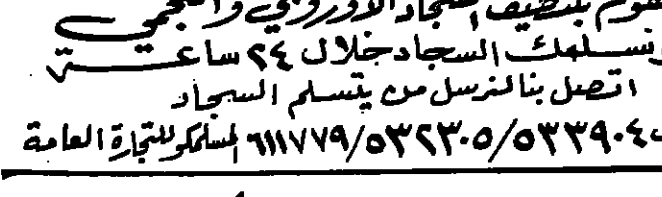 نقوم بتنظيف السجاد الأوروبي والعجمي
ونسلمك السجاد خلال ٢٤ ساعة
اتصل بنا لنرسل من يتسلم السجاد
٥٣٣٩٠٤/٥٣٢٣٠٥/٦١١٧٧٩ للتجارة العامة